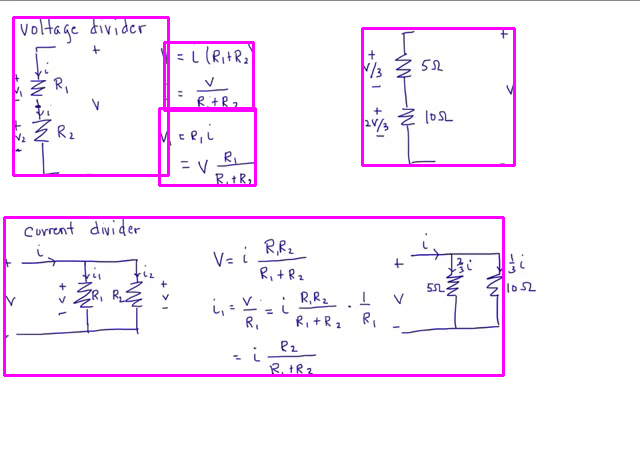 Voltage divider
+
i
+
V₁
-
R₁
V
i
+
V₂
-
R₂
V = i (R₁+R₂)
= V / (R₁+R₂)
V₁ = R₁ i
= V R₁ / (R₁+R₂)
+
V/3
-
5Ω
+
V
+
2V/3
-
10Ω
-
Current divider
i
+
V
-
i₁
+
V
-
R₁
i₂
R₂
+
V
-
V = i R₁R₂ / (R₁+R₂)
i₁ = V/R₁ = i R₁R₂ / (R₁+R₂) · 1/R₁
= i R₂ / (R₁+R₂)
i
+
V
-
2/3 i
5Ω
1/3 i
10Ω